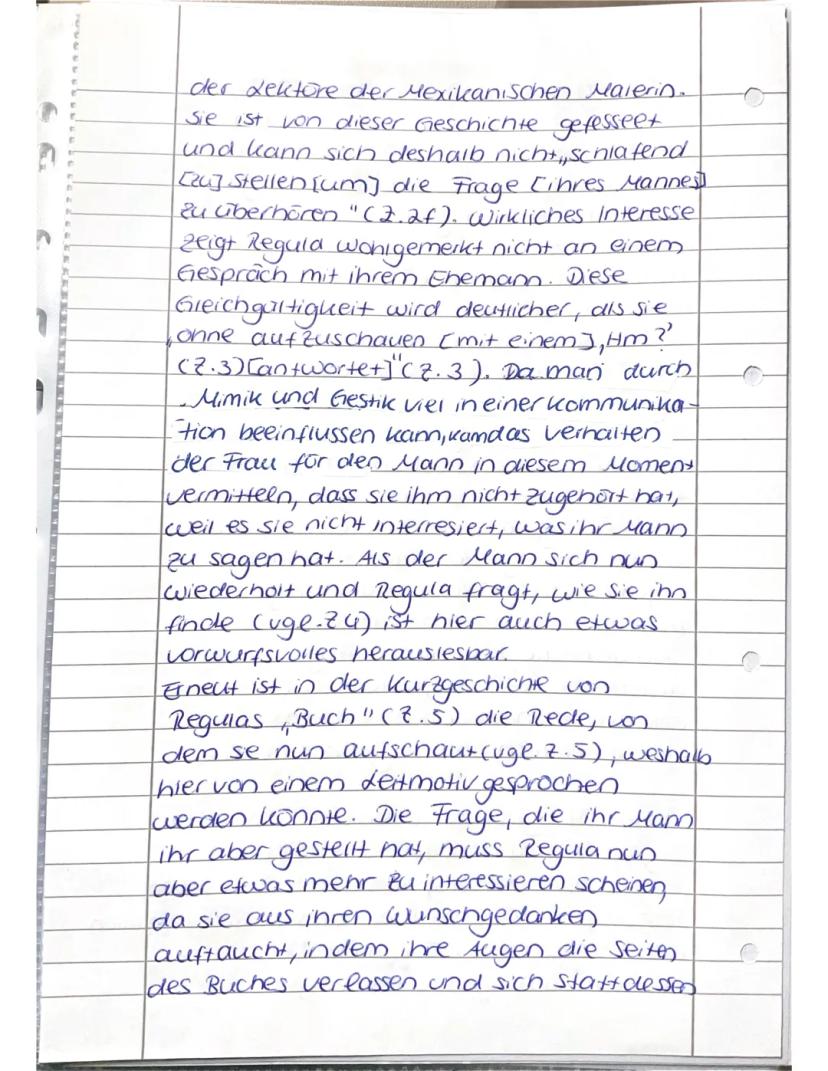 der Lektöre der Mexikanischen Malerin.
Sie ist von dieser Geschichte gefesselt
und kann sich deshalb nicht „schlafend
[zu] stellen [um] die Frage [ihres Mannes]
zu überhören" (Z.2f). Wirkliches Interesse
zeigt Regula wohlgemerkt nicht an einem
Gespräch mit ihrem Ehemann. Diese
Gleichgültigkeit wird deutlicher, als sie
„ohne aufzuschauen [mit einem] ‚Hm?'
(Z.3) [antwortet]" (Z.3). Da man durch
Mimik und Gestik viel in einer Kommunika-
tion beeinflussen kann, kann das Verhalten
der Frau für den Mann in diesem Moment
vermitteln, dass sie ihm nicht zugehört hat,
weil es sie nicht interresiert, was ihr Mann
zu sagen hat. Als der Mann sich nun
wiederholt und Regula fragt, wie sie ihn
finde (vgl. Z4) ist hier auch etwas
vorwurfsvolles herauslesbar.
Erneut ist in der Kurzgeschichte von
Regulas „Buch" (Z.5) die Rede, von
dem se nun aufschaut (vgl. Z.5), weshalb
hier von einem Leitmotiv gesprochen
werden könnte. Die Frage, die ihr Mann
ihr aber gestellt hat, muss Regula nun
aber etwas mehr zu interessieren scheinen,
da sie aus ihren Wunschgedanken
auftaucht, indem ihre Augen die Seiten
des Buches verlassen und sich stattdessen